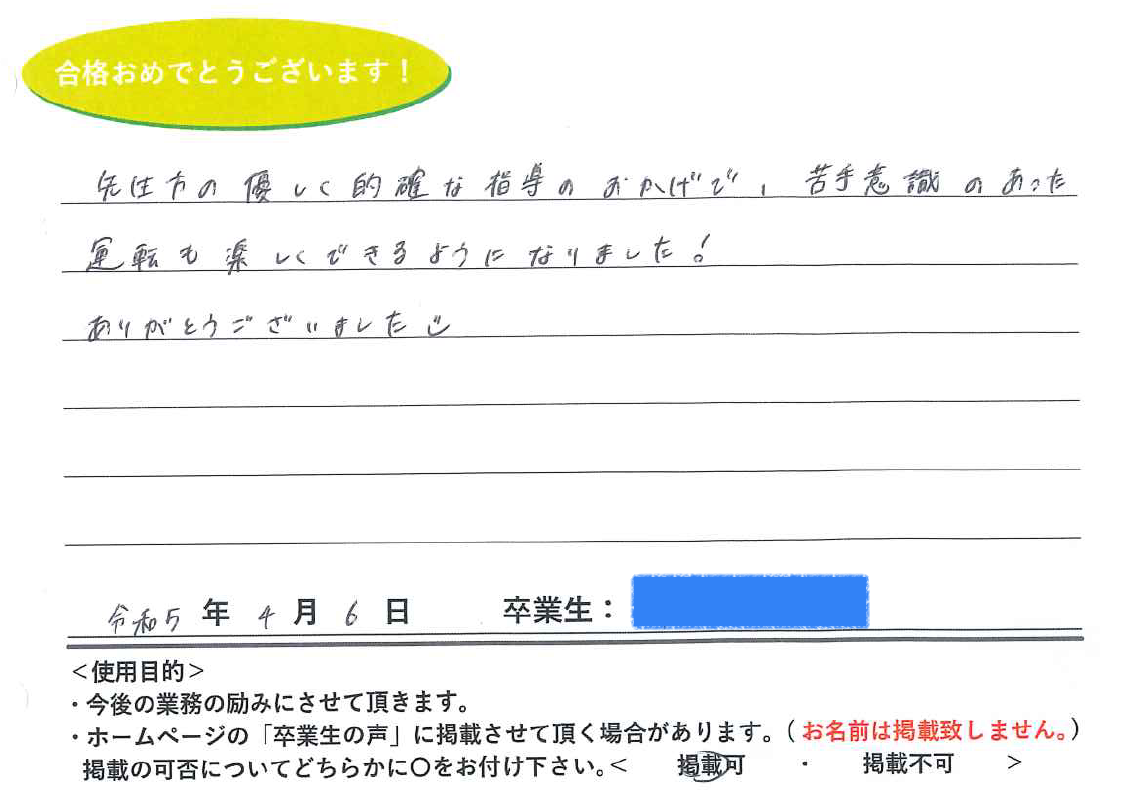 合格おめでとうございます!
先生方の優しく的確な指導のおかげで、苦手意識のあった
運転も楽しくできるようになりました!
ありがとうございました
令和5年4月6日 卒業生:
<使用目的>
・今後の業務の励みにさせて頂きます。
・ホームページの「卒業生の声」に掲載させて頂く場合があります。(お名前は掲載致しません。)
掲載の可否についてどちらかに〇をお付け下さい。< 掲載可 ・ 掲載不可 >